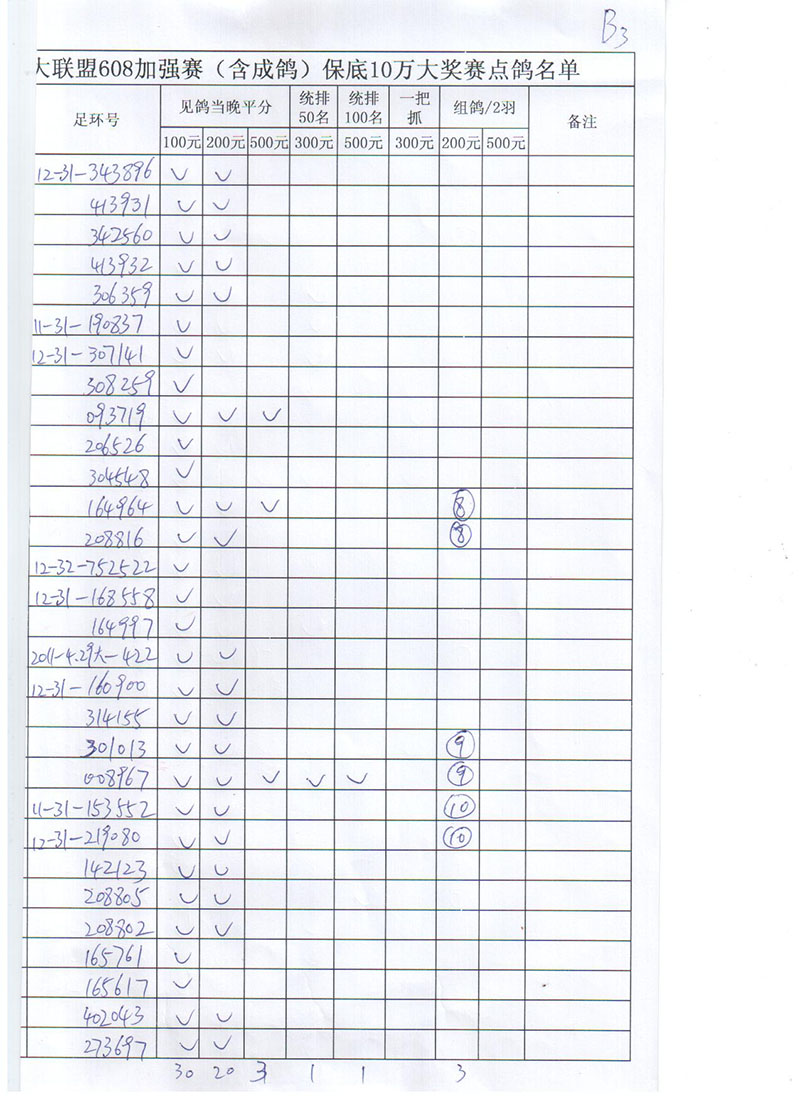 B3
大联盟608加强赛（含成鸽）保底10万大奖赛点鸽名单
足环号 见鸽当晚平分 统排50名 统排100名 一把抓 组鸽/2羽 备注
100元 200元 500元 300元 500元 300元 200元 500元
12-31-343896 ✓ ✓
413931 ✓ ✓
342560 ✓ ✓
413932 ✓ ✓
306359 ✓ ✓
11-31-190837 ✓
12-31-307141 ✓
308259 ✓
093719 ✓ ✓ ✓
206526 ✓
304548 ✓
164964 ✓ ✓ ✓ ⑧
208816 ✓ ✓ ⑧
12-32-752522 ✓
12-31-168558 ✓
164997 ✓
2011-4.29大-422 ✓ ✓
12-31-160900 ✓ ✓
314155 ✓ ✓
301013 ✓ ✓ ⑨
008967 ✓ ✓ ✓ ✓ ✓ ⑨
11-31-153552 ✓ ✓ ⑩
12-31-219080 ✓ ✓ ⑩
142123 ✓ ✓
208805 ✓ ✓
208802 ✓ ✓
165761 ✓
165617 ✓
402043 ✓ ✓
273697 ✓ ✓
30 20 3 1 1 3